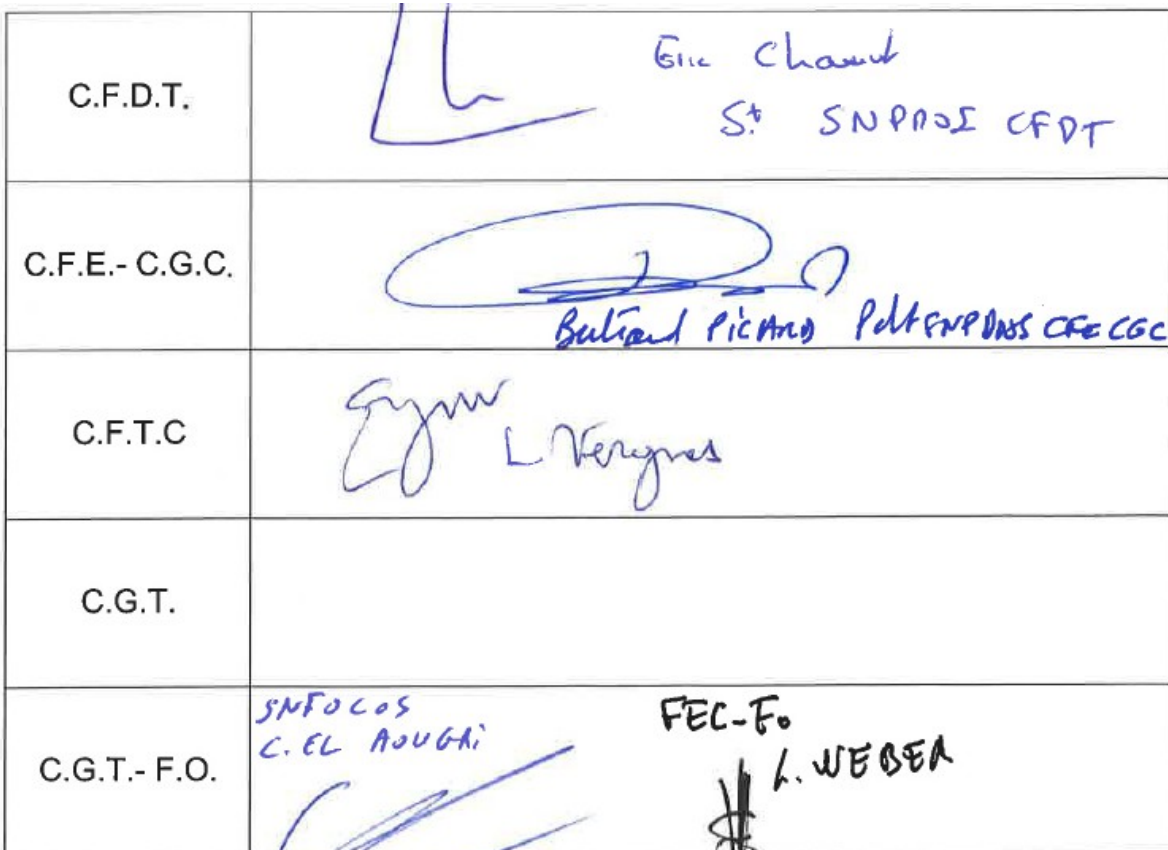 C.F.D.T.
Eric
St SNPDOS CFDT
C.F.E.- C.G.C.
Bertrand PICARD Pdt SNPDOS CFE CGC
C.F.T.C
L Vergnes
C.G.T.
C.G.T.- F.O.
SNFOCOS
C. EL AOUGRi
FEC-Fo
L. WEBER